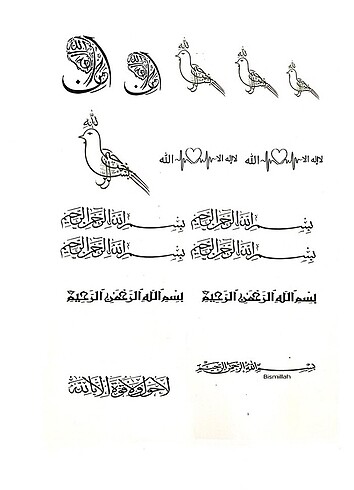 لله
لله
لله
لله
لا إله إلا الله
لا إله إلا الله
بسم الله الرحمن الرحيم
بسم الله الرحمن الرحيم
بسم الله الرحمن الرحيم
بسم الله الرحمن الرحيم
بسم الله الرحمن الرحيم
بسم الله الرحمن الرحيم
بسم الله الرحمن الرحيم
Bismillah
لا حول ولا قوة إلا بالله